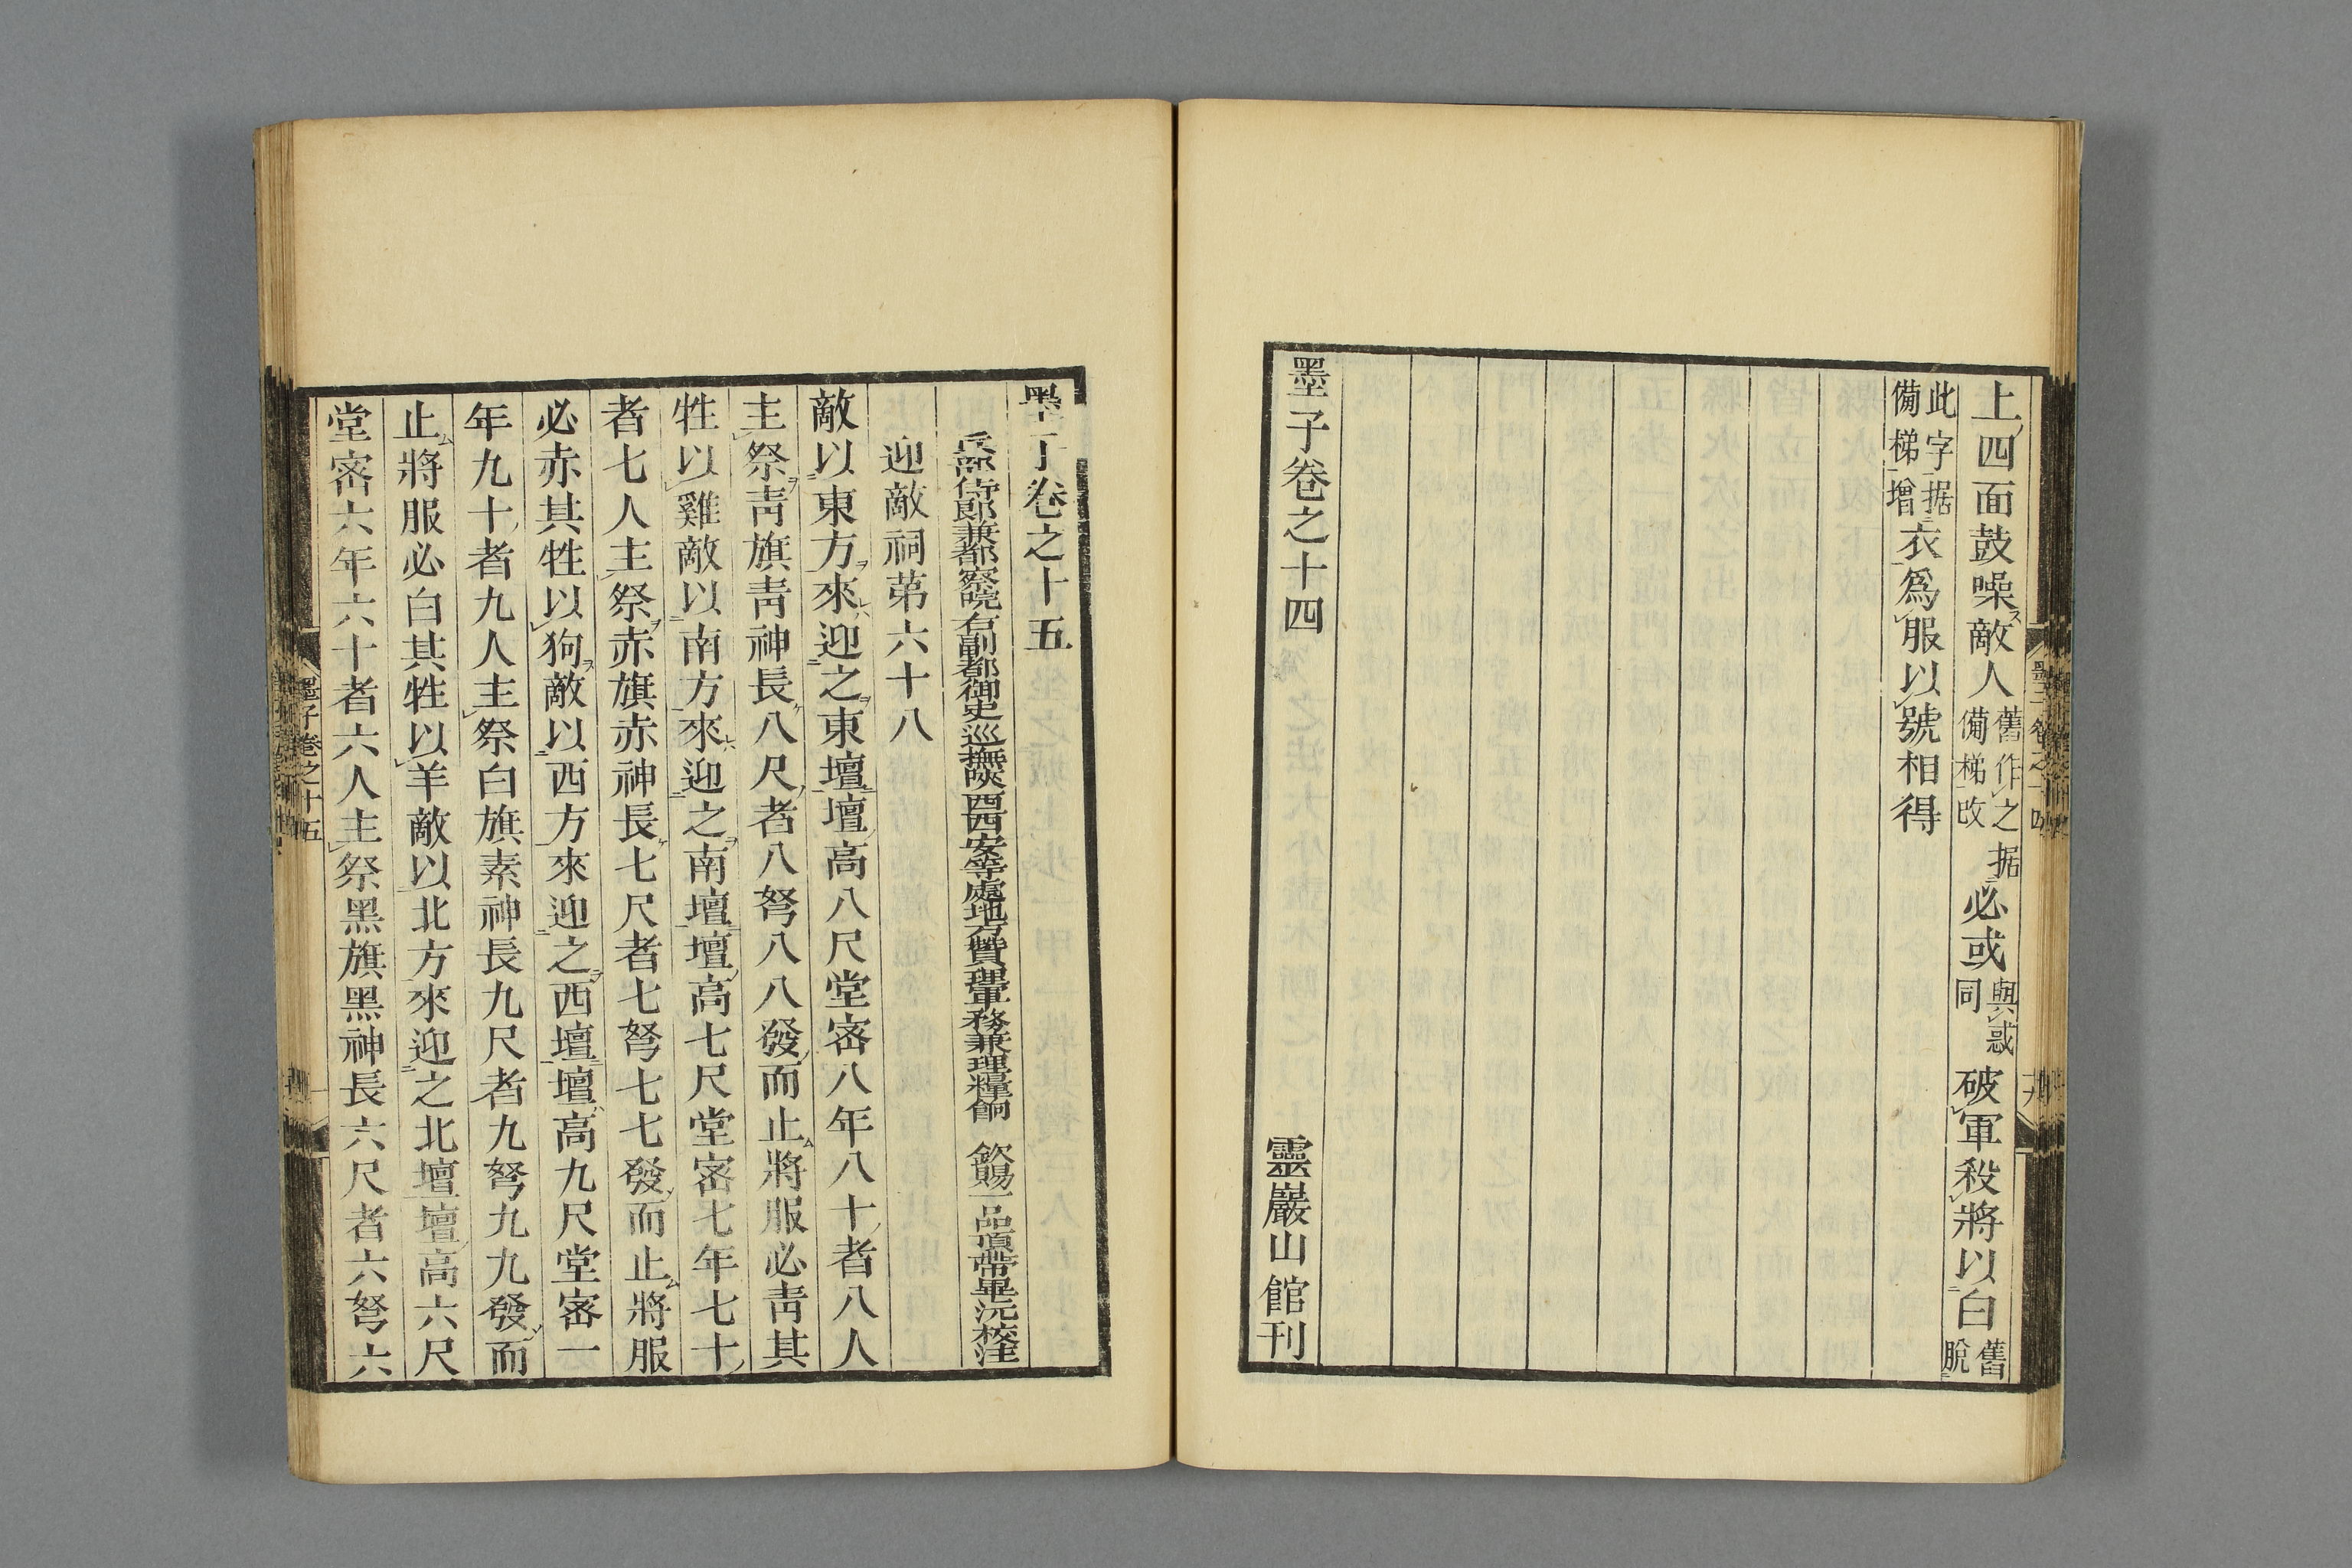 上四面鼓噪敵人舊作之据備梯改必或與惑同破軍殺將以白舊脫
此字据備梯增衣爲服以號相得
墨子卷之十四
靈巖山館刊
墨子卷之十五
兵部侍郎兼都察院右副都御史巡撫陝西西安等處地方贊理軍務兼理糧餉 欽賜一品頂帶畢沅校注
迎敵祠第六十八
敵以東方來迎之東壇壇高八尺堂宻八年八十者八人
主祭靑旗靑神長八尺者八弩八八發而止將服必靑其
牲以雞敵以南方來迎之南壇壇高七尺堂宻七年七十
者七人主祭赤旗赤神長七尺者七弩七七發而止將服
必赤其牲以狗敵以西方來迎之西壇壇高九尺堂宻一
年九十者九人主祭白旗素神長九尺者九弩九九發而
止將服必白其牲以羊敵以北方來迎之北壇壇高六尺
堂宻六年六十者六人主祭黑旗黑神長六尺者六弩六
墨子卷之十五